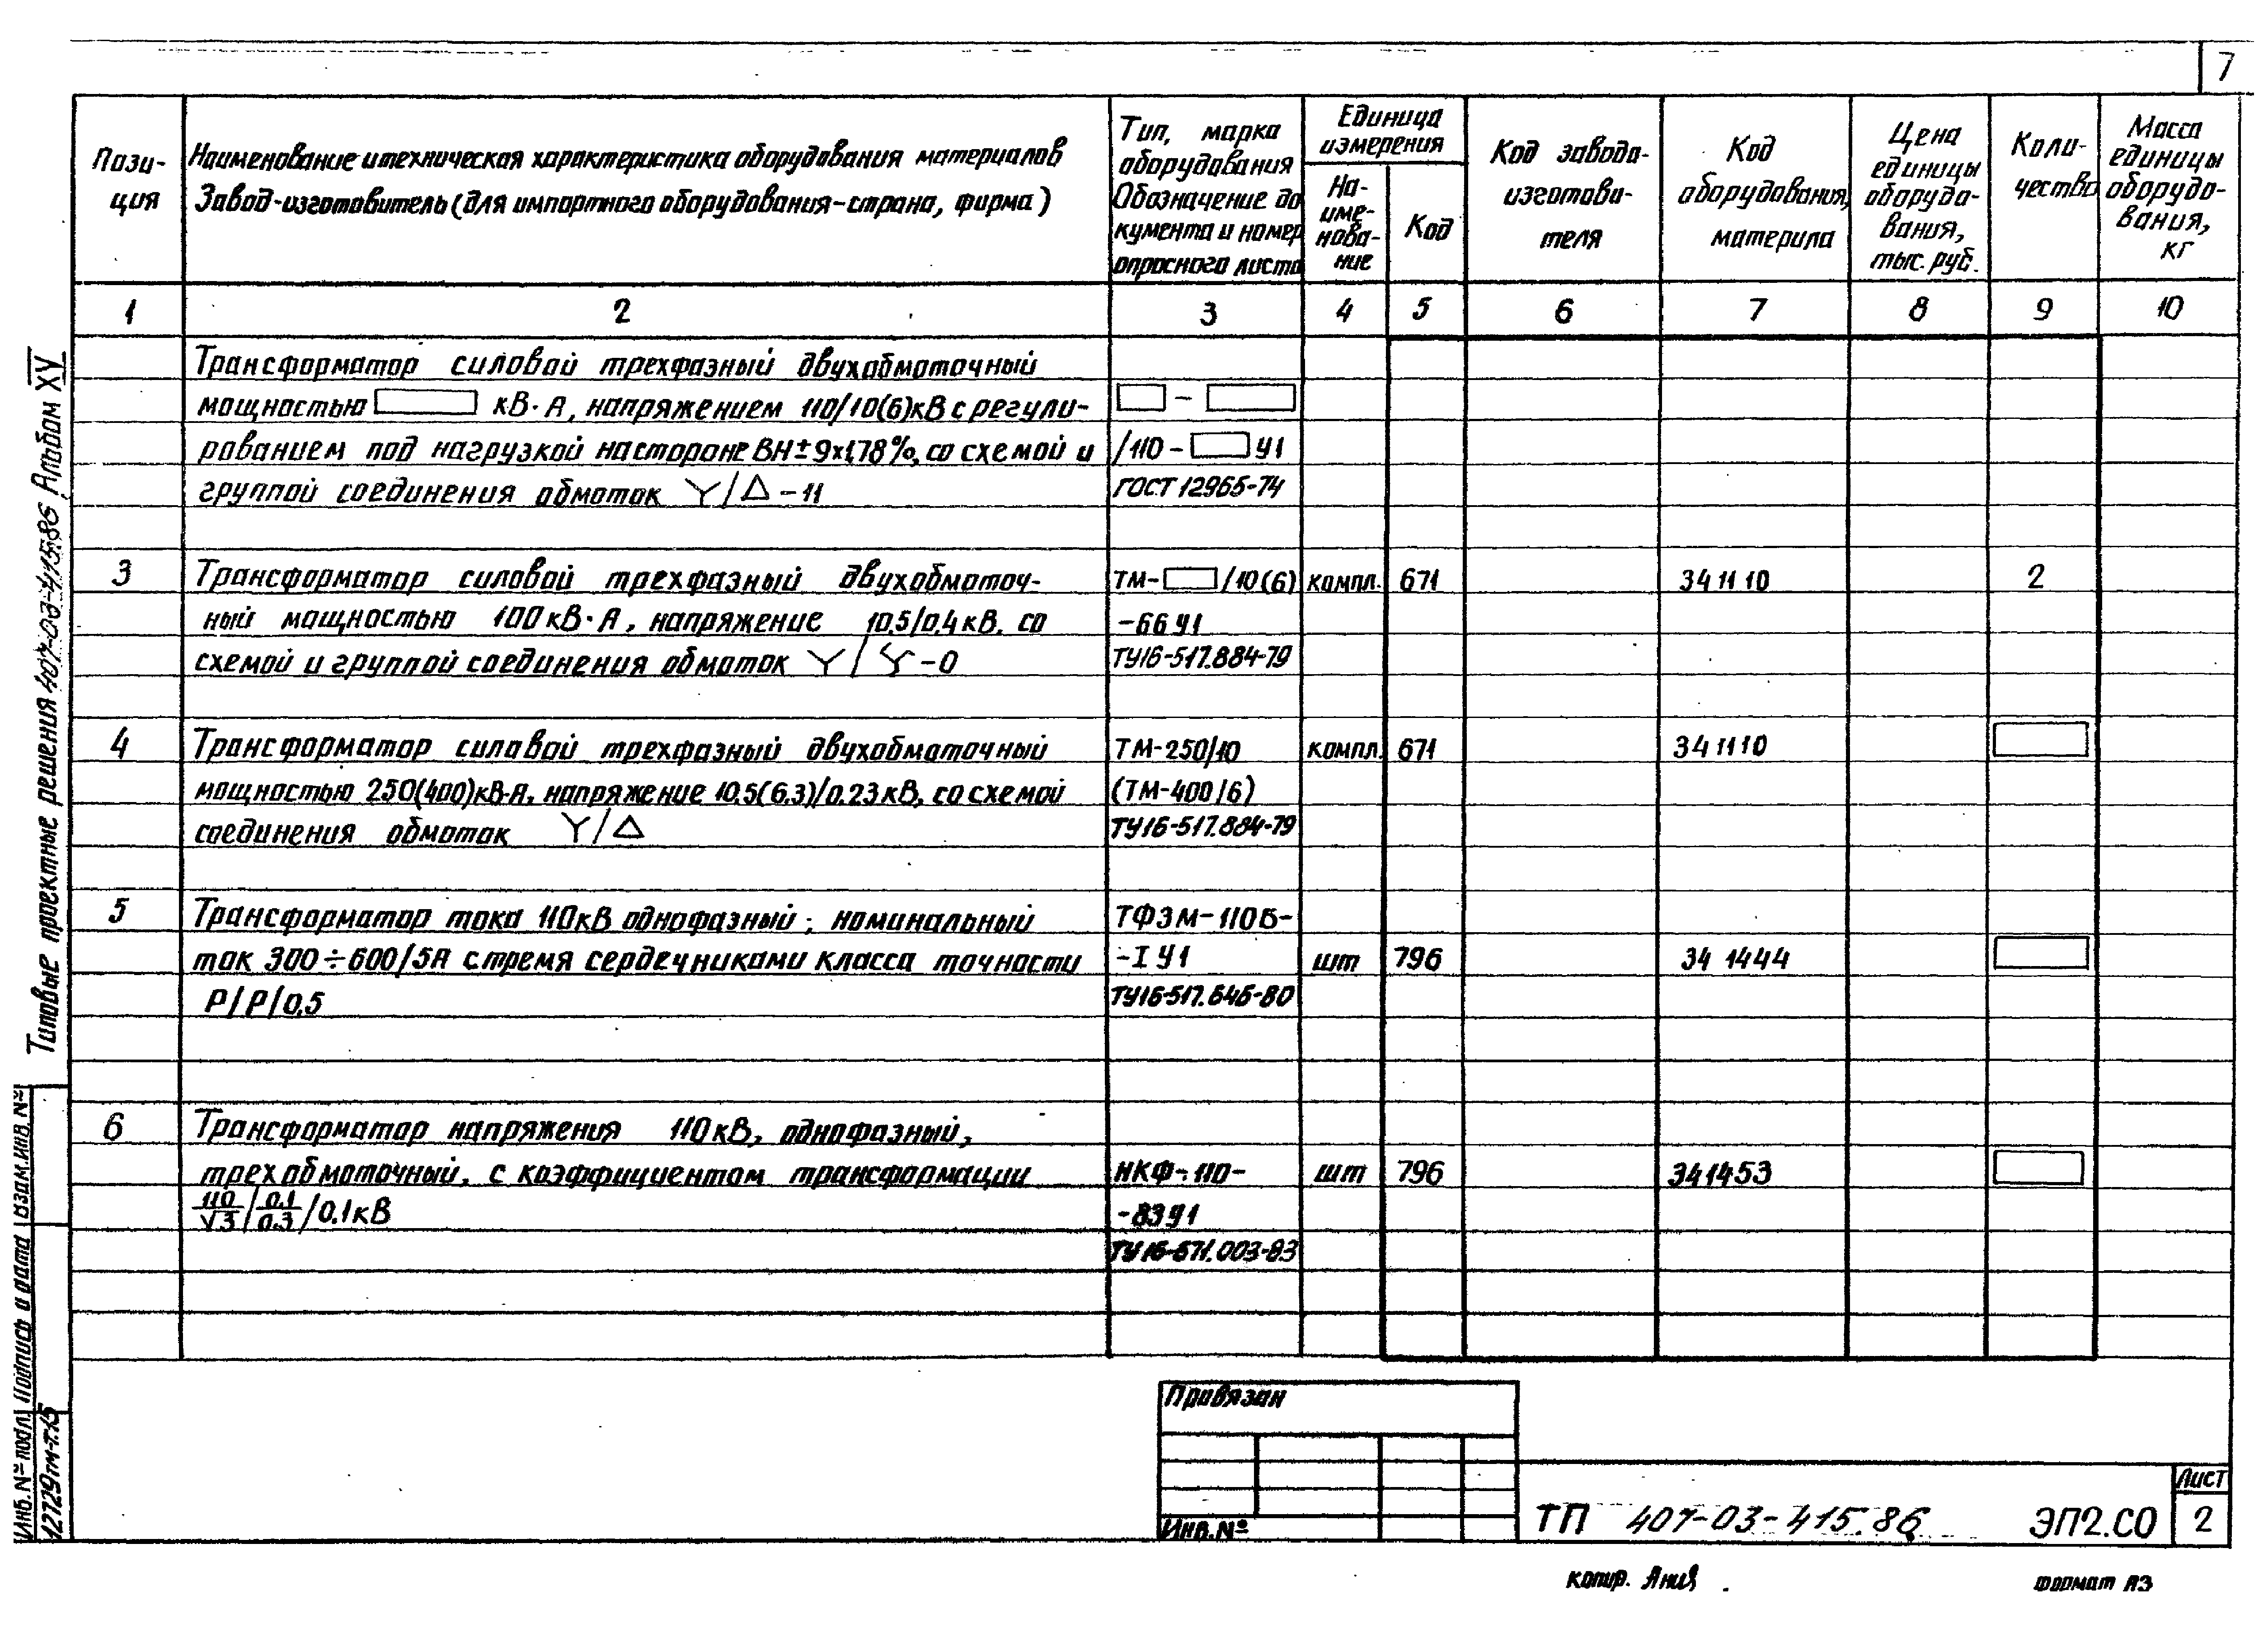 7
Пози-
ция
Наименование и техническая характеристика оборудования материалов
Завод-изготовитель (для импортного оборудования-страна, фирма)
Тип, марка
оборудования
Обозначение до
кумента и номер
опросного листа
Единица
измерения
На-
име-
нова-
ние
Код
Код завода-
изготови-
теля
Код
оборудования,
материла
Цена
единицы
оборудо-
вания,
тыс. руб.
Коли-
чество
Масса
единицы
оборудо-
вания,
кг
1 2 3 4 5 6 7 8 9 10
Трансформатор силовой трехфазный двухобмоточный
мощностью кВ·А, напряжением 110/10(6)кВ с регули- –
рованием под нагрузкой на стороне ВН ± 9х1,78%, со схемой и /110 – У1
группой соединения обмоток Y/Δ – 11 ГОСТ 12965-74
3 Трансформатор силовой трехфазный двухобмоточ- ТМ- /10(6) компл. 671 34 11 10 2
ный мощностью 100 кВ·А, напряжение 10,5/0,4 кВ, со -66 У1
схемой и группой соединения обмоток Y/ – 0 ТУ16-517.884-79
4 Трансформатор силовой трехфазный двухобмоточный ТМ-250/10 компл. 671 34 11 10
мощностью 250(400)кВ·А, напряжение 10,5(6,3)/0,23 кВ, со схемой (ТМ-400/6)
соединения обмоток Y/Δ ТУ16-517.884-79
5 Трансформатор тока 110кВ однофазный; номинальный ТФЗМ-110Б-
ток 300÷600/5А с тремя сердечниками класса точности -I У1 шт 796 34 1444
Р/Р/0,5 ТУ16-517.646-80
6 Трансформатор напряжения 110 кВ, однофазный,
трехобмоточный, с коэффициентом трансформации НКФ-110- шт 796 341453
110/√3 / 0.1/0.3 / 0.1 кВ -83 У1
ТУ16-671.003-83
Типовые проектные решения 407-03-415.86 Альбом XV
Взам. инв. №
Подпись и дата
Инв. № подл.
12729тм-т.15
Привязан
Инв. №
ТП 407-03-415.86 ЭП2.СО
Лист
2
копир. Формат А3